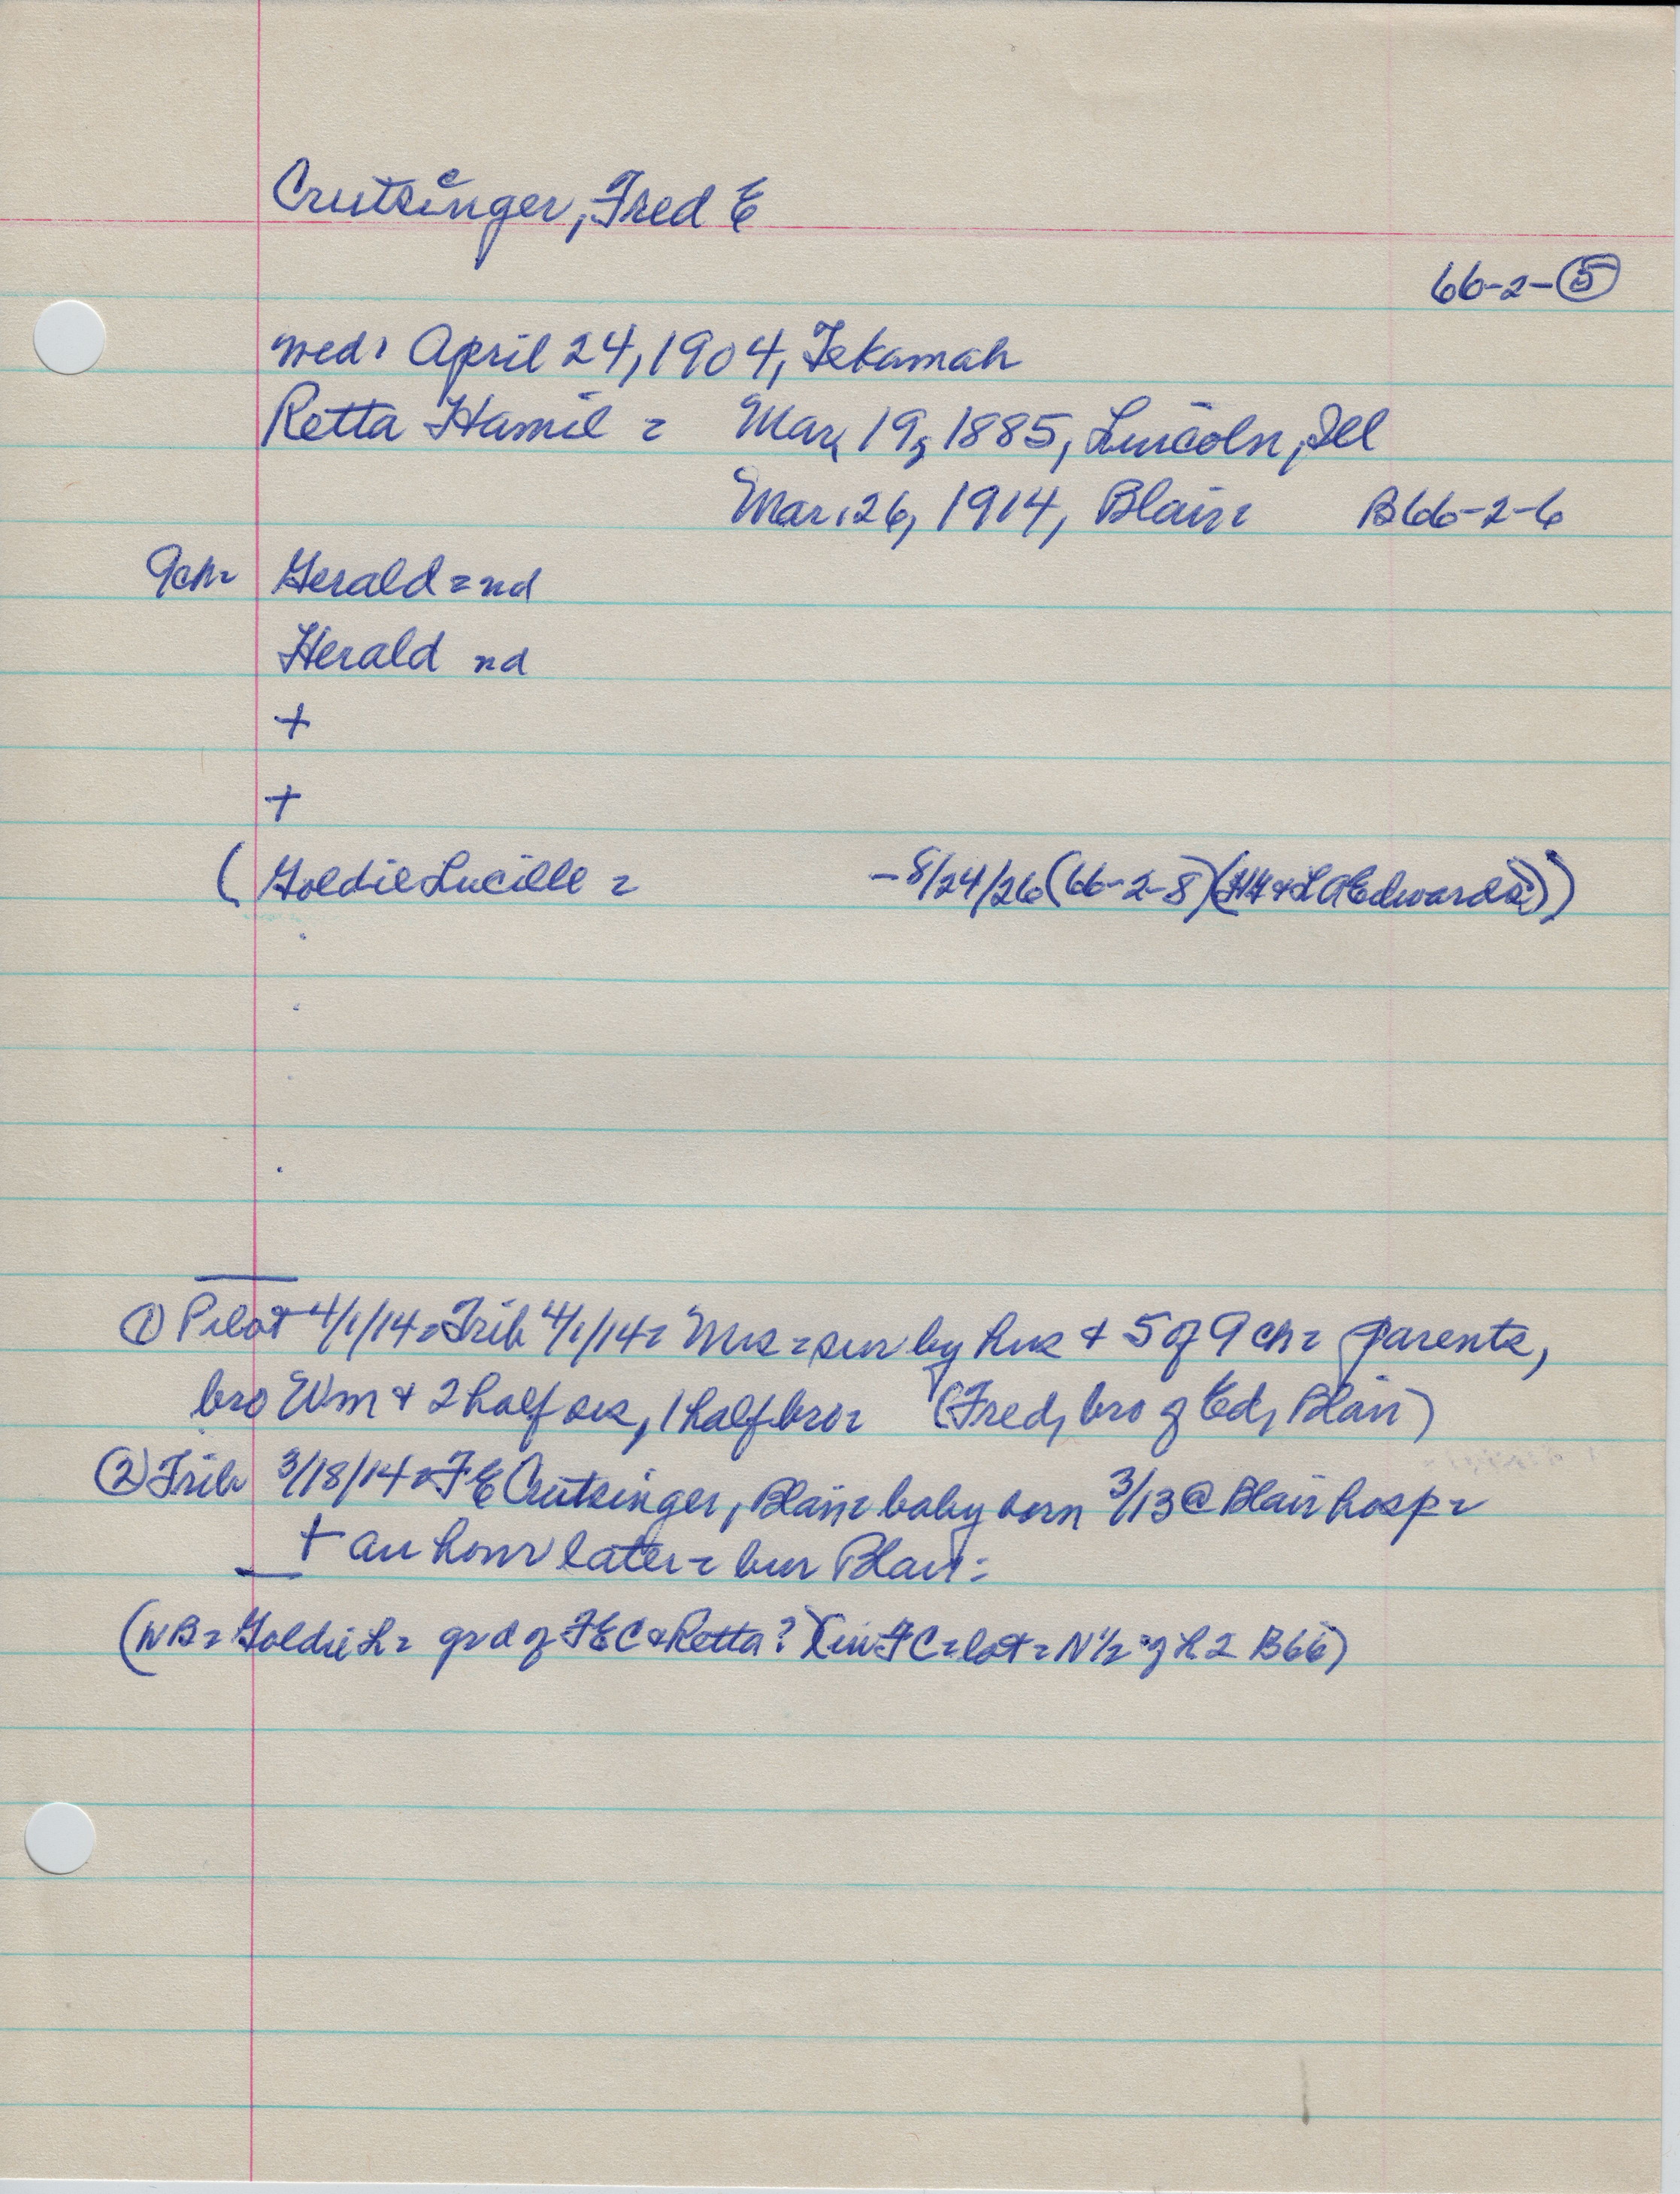 Crutsinger, Fred E
e
66-2-⑤
med: April 24, 1904, Tekamah
Retta Hamil = Mar, 19, 1885, Lincoln, Ill
Mar. 26, 1914, Blair= B66-2-6
9ch= Gerald = nd
Herald nd
+
+
(Goldie Lucille = -8/24/26 (66-2-8) ( & L A Edwards))
① Pilot 4/1/14 = Trib 4/1/14 = Mrs = sur by hus + 5 of 9 ch = parents,
bro Wm + 2 half sis, 1 half bro = (Fred, bro of Ed, Blair)
② Trib 3/18/14 = F E Crutsinger, Blair = baby born 3/13 @ Blair hosp =
+ an hour later = bur Blair =
(NB = Goldie L = grd of F E C & Retta?) (in F C = lot = N 1/2 of L 2 B66)